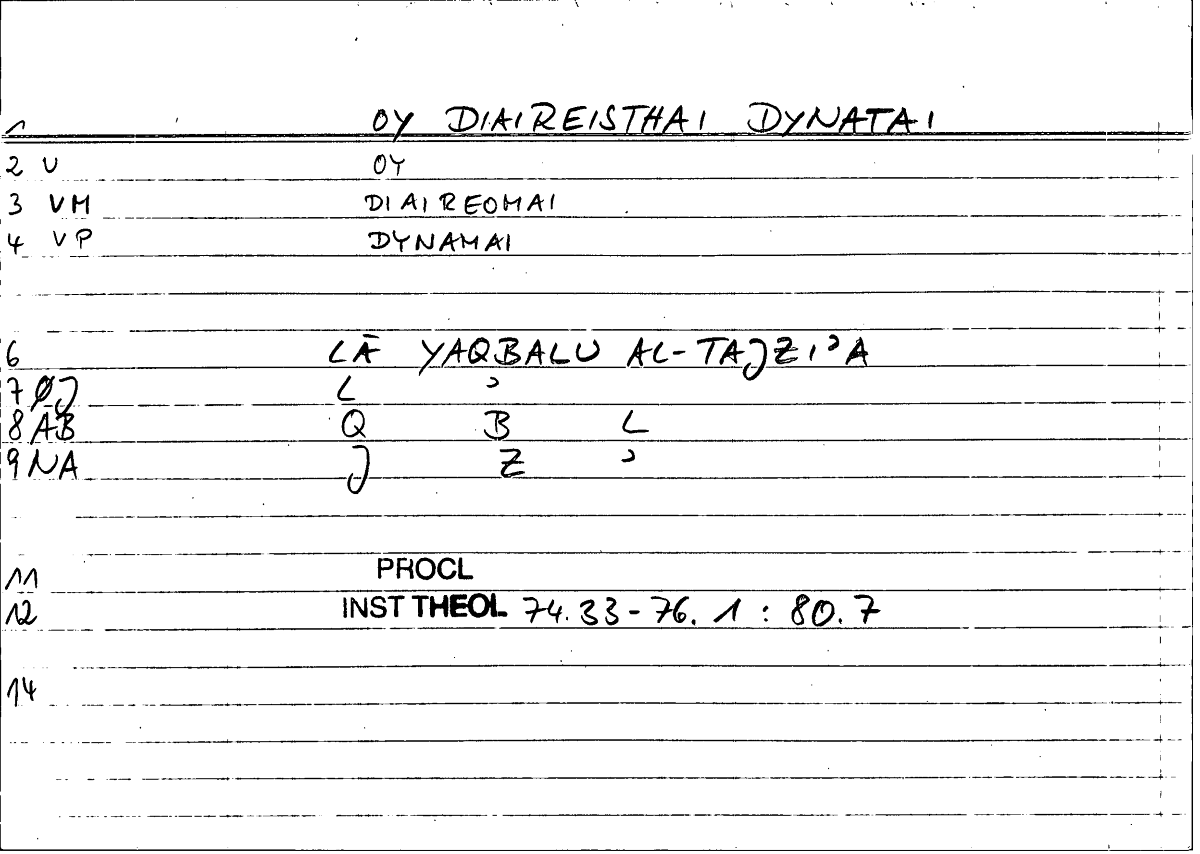 1 OY DIAIREISTHAI DYNATAI
2 V OY
3 VM DIAIREOMAI
4 VP DYNAMAI
6 LĀ YAQBALU AL-TAJZIʾA
7 ØJ L ʾ
8 AB Q B L
9 NA J Z ʾ
11 PROCL
12 INST THEOL 74.33-76.1 : 80.7
14